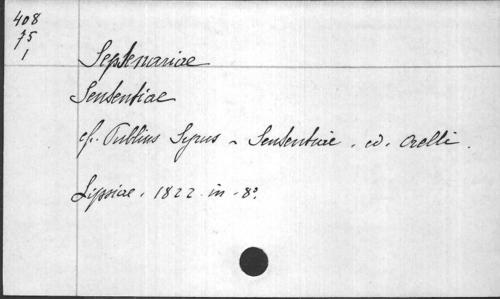 408
75
1
Septenariae
Sententiae
cf. Publius Syrus - Sententiae. ed. Orelli.
Lipsiae. 1822 in-8°.